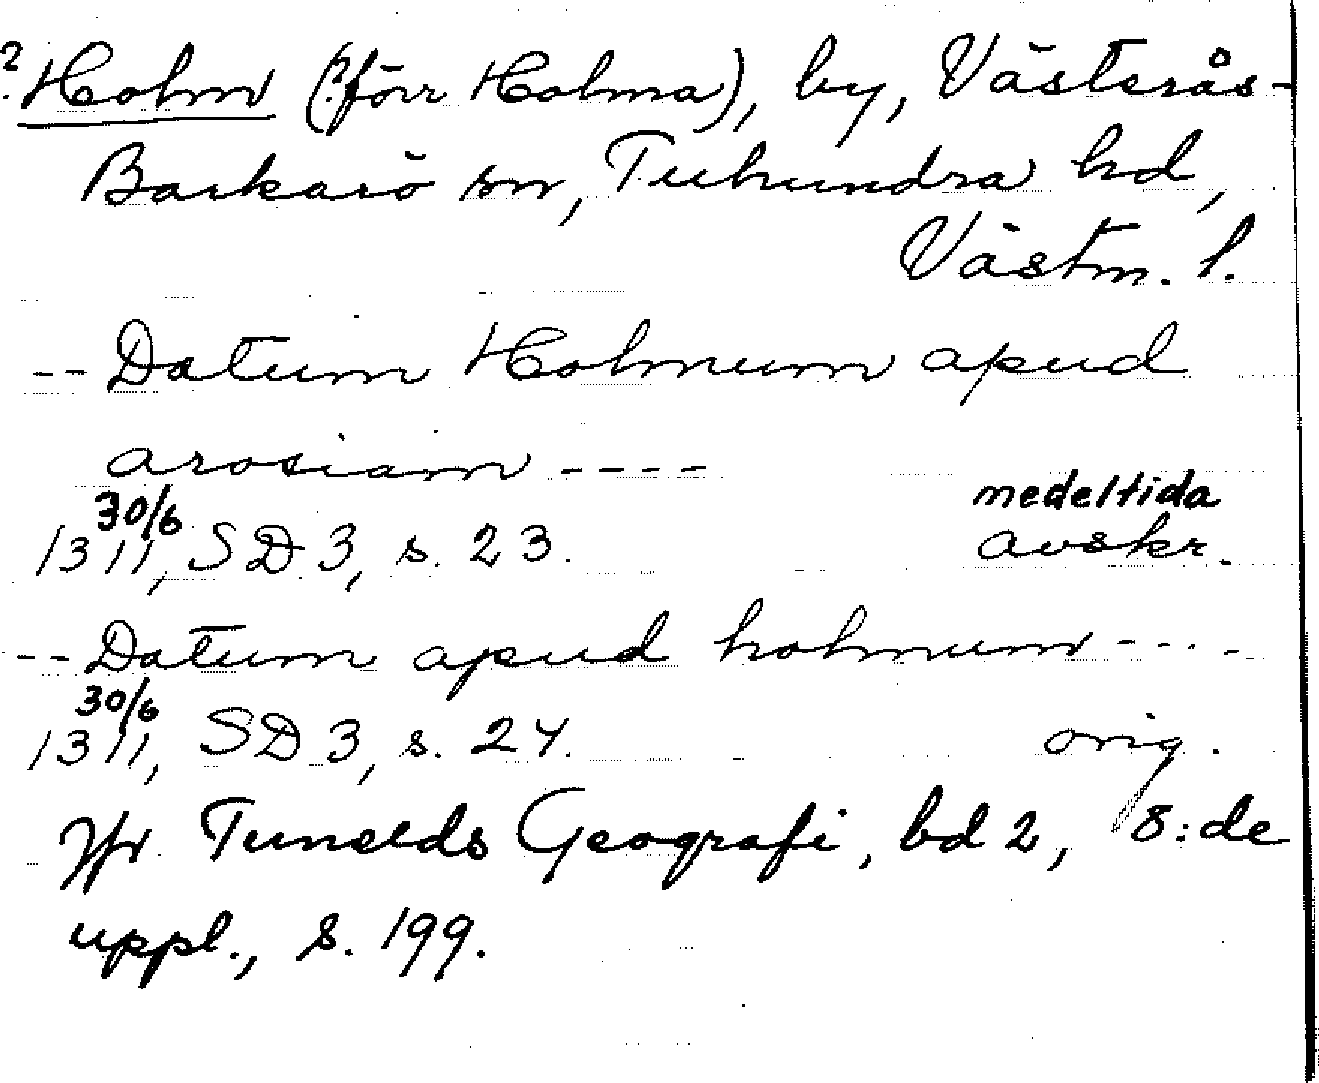 ? Holm (? förr Holma), by, Västerås-
Barkarö sn, Tuhundra hd,
Västm. l.
-- Datum Holmum apud
arosiam ----
medeltida
1311 30/6, SD 3, s. 23. avskr.
-- Datum apud holmum ----
1311 30/6, SD 3, s. 24. orig.
Jfr Tunelds Geografi, bd 2, 8:de
uppl., s. 199.